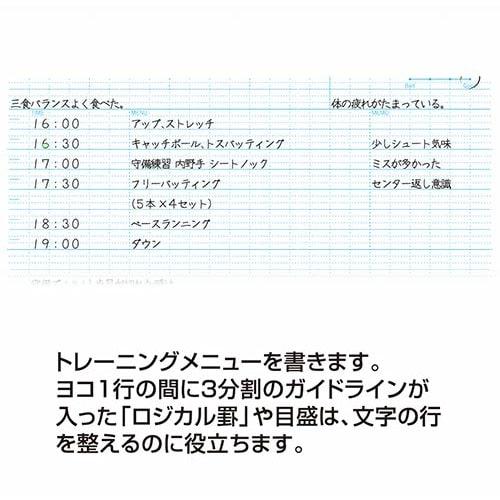 Bad
三食バランスよく食べた。 体の疲れがたまっている。
TIME MENU MEMO
16:00 アップ、ストレッチ
16:30 キャッチボール、トスバッティング 少しシュート気味
17:00 守備練習 内野手 シートノック ミスが多かった
17:30 フリーバッティング センター返し意識
(5本×4セット)
18:30 ベースランニング
19:00 ダウン
トレーニングメニューを書きます。
ヨコ1行の間に3分割のガイドラインが
入った「ロジカル罫」や目盛は、文字の行
を整えるのに役立ちます。